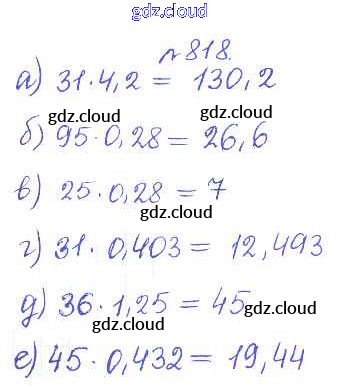 gdz.cloud
№ 818.
а) 31·4,2 = 130,2
gdz.cloud
б) 95·0,28 = 26,6
gdz.cloud
в) 25·0,28 = 7
gdz.cloud
г) 31·0,403 = 12,493
gdz.cloud
д) 36·1,25 = 45
gdz.cloud
gdz.cloud
е) 45·0,432 = 19,44
gdz.cloud